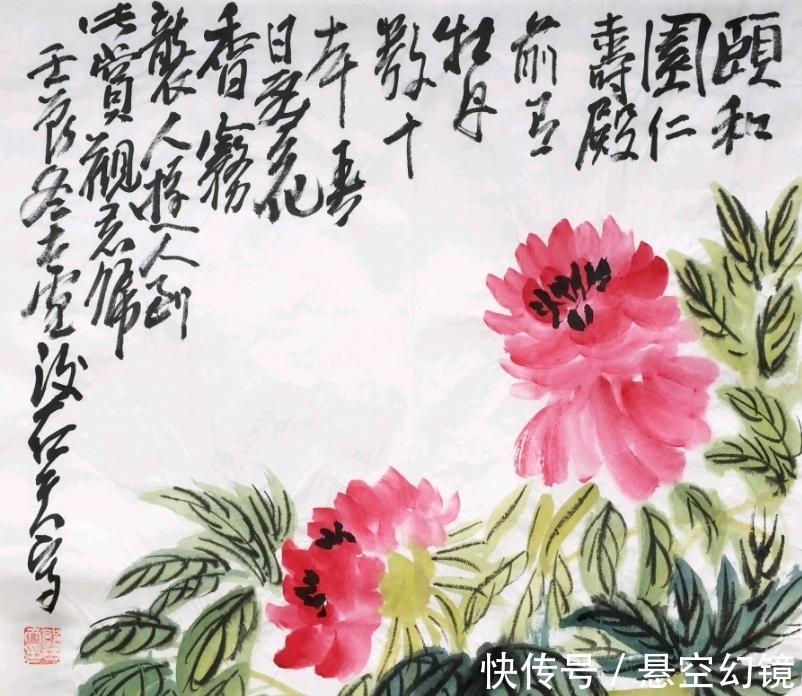 頤和
園仁
壽殿
前有
牡丹
數十
本春
日花
香霧
襲人遊人到
此賞觀忘歸
壬辰冬大雪後石
快传号 / 悬空幻镜